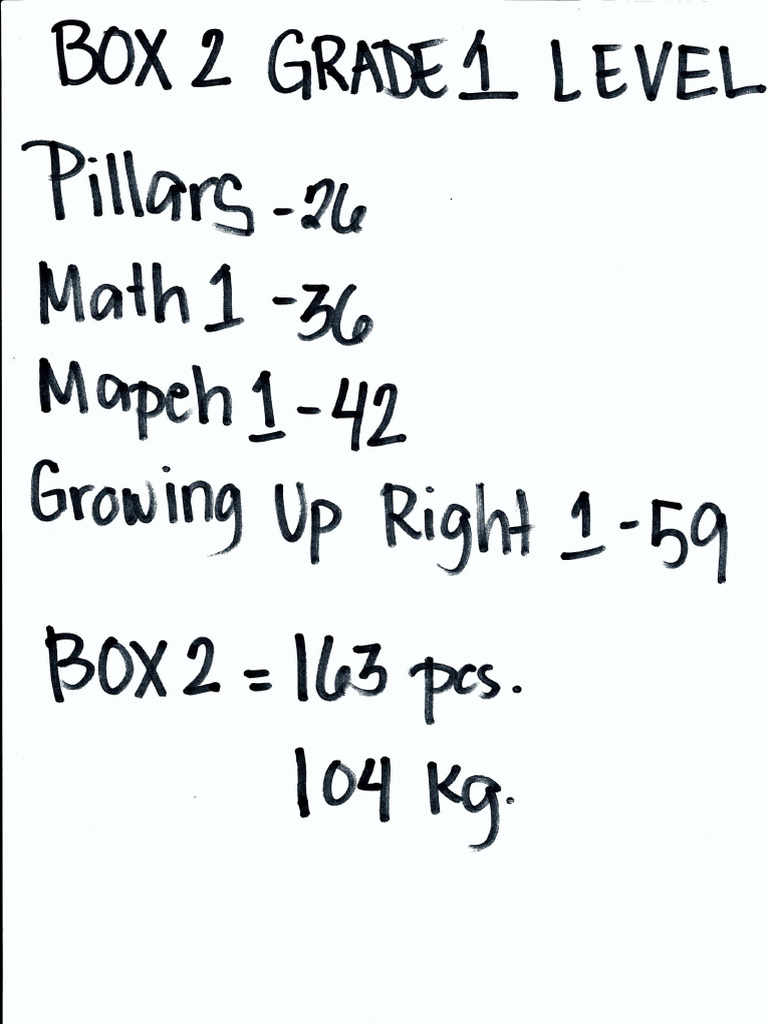 BOX 2 GRADE 1 LEVEL
Pillars - 26
Math 1 - 36
Mapeh 1 - 42
Growing Up Right 1 - 59
BOX 2 = 163 pcs.
104 Kg.